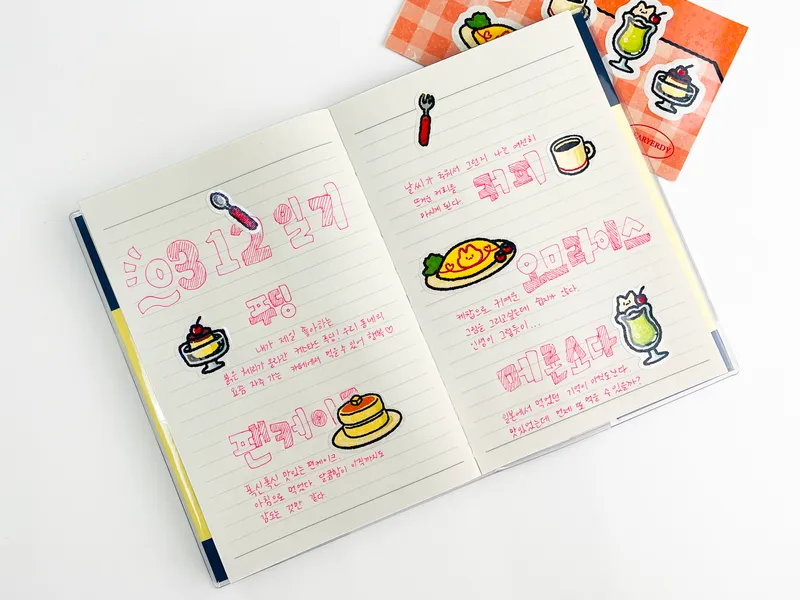 0312 일기
푸딩
내가 제일 좋아하는
붉은 체리가 올라간 커스타드 푸딩! 우리 동네의
요즘 자주 가는 카페에서 먹을 수 있어 행복♡
팬케이크
폭신폭신 맛있는 팬케이크
아침으로 먹었다 달콤함이 아직까지도
감도는 것만 같다
날씨가 추워서 그런지 나는 여전히
뜨거운 커피를
마시게 된다.
커피
오므라이스
케찹으로 귀여운
그림을 그리고싶은데 쉽지가 않다.
인생이 그렇듯이...
메론소다
일본에서 먹었던 기억이 아직도 난다
맛있었는데 언제 또 먹을 수 있을까?